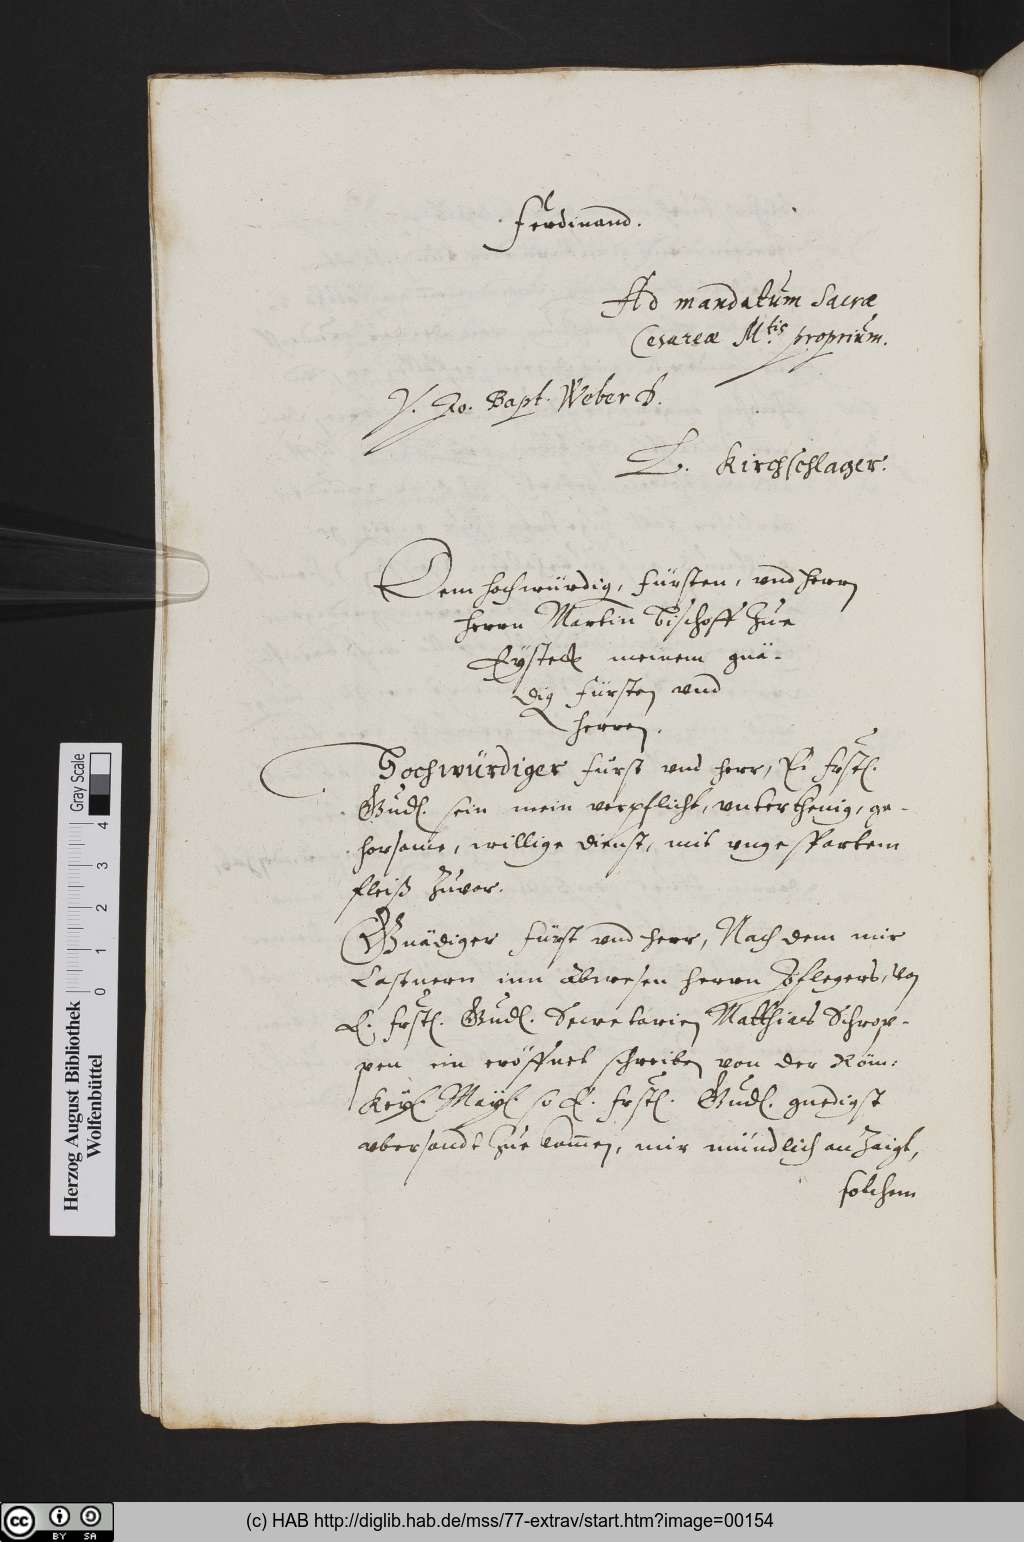 Ferdinand.
Ad mandatum Sacræ
Cesareæ Mtis proprium.
V. Jo. Bapt. Weber D.
L. Kirchschlager.
Dem hochwürdig, Fürsten, vnd Herrn
Herrn Martin Bischoff Zue
Eÿstett meinem gnä-
dig Fürsten vnd
Herren.
Hochwürdiger Fürst vnd Herr, E. Frstl.
Gndl. sein mein verpflicht, vnterthenig, ge-
horsame, willige dienst, mit vngespartem
fleiß Zuvor.
Gnädiger Fürst vnd Herr, Nach dem mir
Castnern inn abwesen Herrn Pflegers, von
E. Frstl. Gndl. Secretarien Matthias Schrop-
pen ein eröffnet schreiben von der Röm:
Keÿl. Maÿl. so E. Frstl. Gndl. gnedigst
vbersandt Zue komen, mir mündlich anZaigt,
solchem
Herzog August Bibliothek
Wolfenbüttel
Gray Scale
0 1 2 3 4
cc BY SA
(c) HAB http://diglib.hab.de/mss/77-extrav/start.htm?image=00154